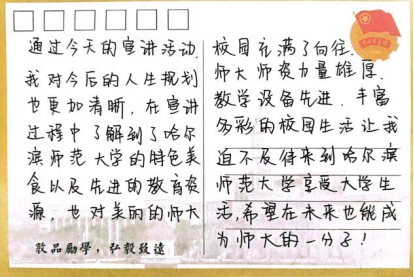 通过今天的宣讲活动,
我对今后的人生规划
也更加清晰,在宣讲
过程中了解到了哈尔
滨师范大学的特色美
食以及先进的教育资
源,也对美丽的师大
敦品励學,弘毅致遠
校园充满了向往.
师大师资力量雄厚.
教学设备先进.丰富
多彩的校园生活让我
迫不及待来到哈尔滨
师范大学享受大学生
活,希望在未来也能成
为师大的一分子!